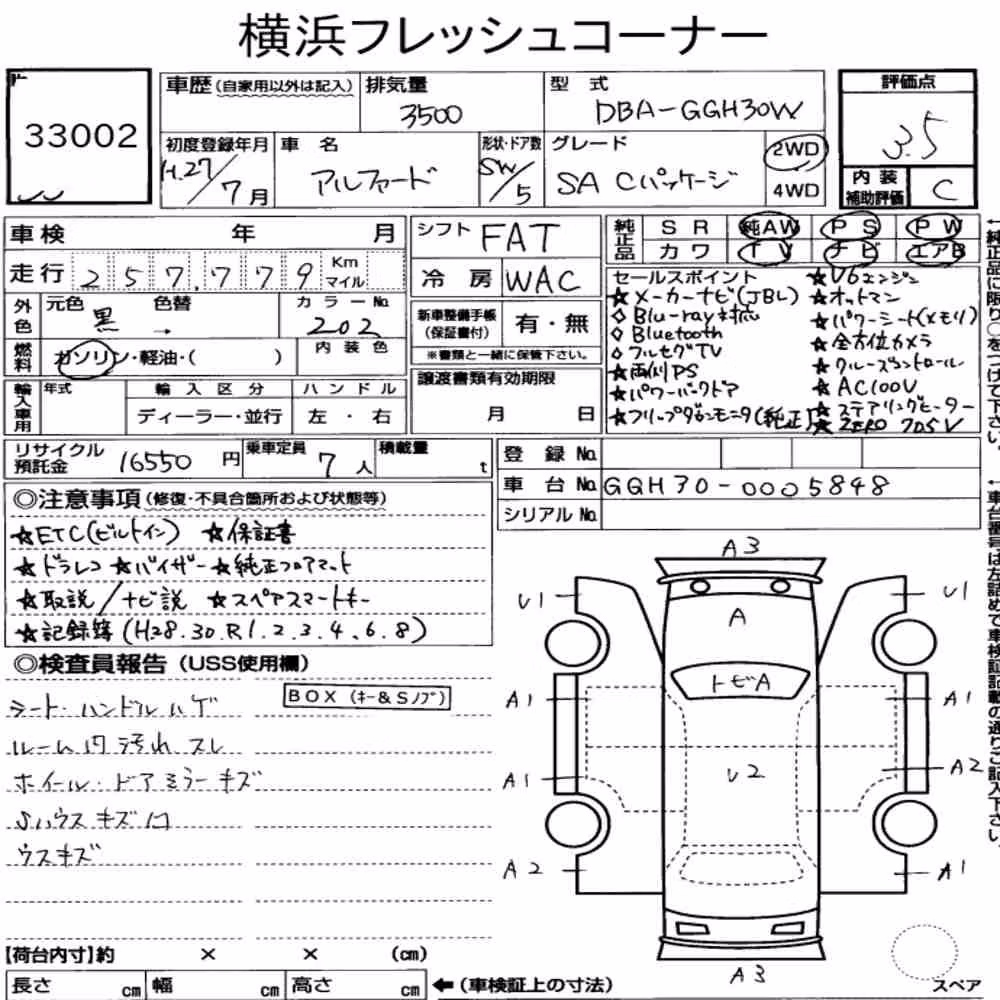 横浜フレッシュコーナー
33002
車歴(自家用以外は記入) 排気量 3500 型式 DBA-GGH30W
評価点 3.5
初度登録年月 H.27/7月 車名 アルファード 形状・ドア数 SW/5 グレード SA Cパッケージ 2WD 4WD
内装補助評価 C
車検 年 月
シフト FAT
純正品 SR 純AW PS PW
カワ TV ナビ エアB
走行 257,779 Km マイル
冷房 WAC
外色 元色 黒 色替 → カラーNo. 202
新車整備手帳(保証書付) 有・無
※書類と一緒に保管下さい。
燃料 ガソリン・軽油・( ) 内装色
譲渡書類有効期限 月 日
輸入車用 年式 輸入区分 ディーラー・並行 ハンドル 左・右
セールスポイント
☆メーカーナビ(JBL)
◇Blu-ray対応
◇Bluetooth
◇フルセグTV
☆両側PS
☆パワーバックドア
☆フリップダウンモニタ(純正)
☆V6エンジン
☆オットマン
☆パワーシート(メモリ)
☆全方位カメラ
☆クルーズコントロール
☆AC100V
☆ステアリングヒーター
☆ZERO
←純正品に限り○をつけて下さい。
リサイクル預託金 16550円 乗車定員 7人 積載量 t
登録No.
車台No. GGH30-0005848
シリアルNo.
←車台番号は左詰めで車検証記載の通りご記入下さい。
◎注意事項(修復・不具合箇所および状態等)
☆ETC(ビルトイン) ☆保証書
☆ドラレコ ☆バイザー ☆純正フロアマット
☆取説/ナビ説 ☆スペアスマートキー
☆記録簿(H28.30.R1.2.3.4.6.8)
◎検査員報告(USS使用欄)
BOX(キー&Sノブ)
シート・ハンドルハゲ
ルーム内汚れ スレ
ホイール・ドアミラーキズ
Sハウスキズ凹
ウスキズ
A3
U1
U1
A
トビA
A1
A1
U2
A1
A2
A2
A1
A3
スペア
【荷台内寸】約 × × (cm)
長さ cm 幅 cm 高さ cm ←(車検証上の寸法)